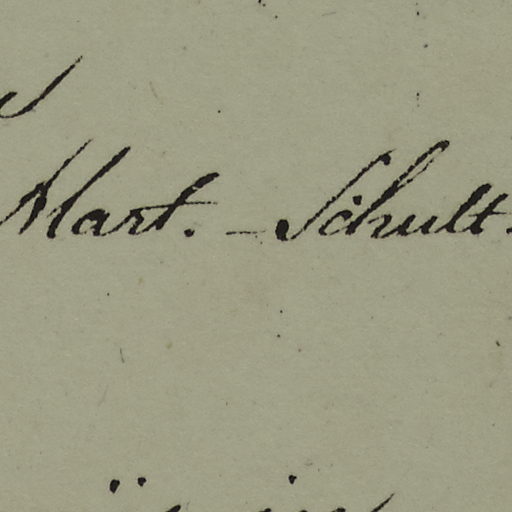 Mart. - Schult.